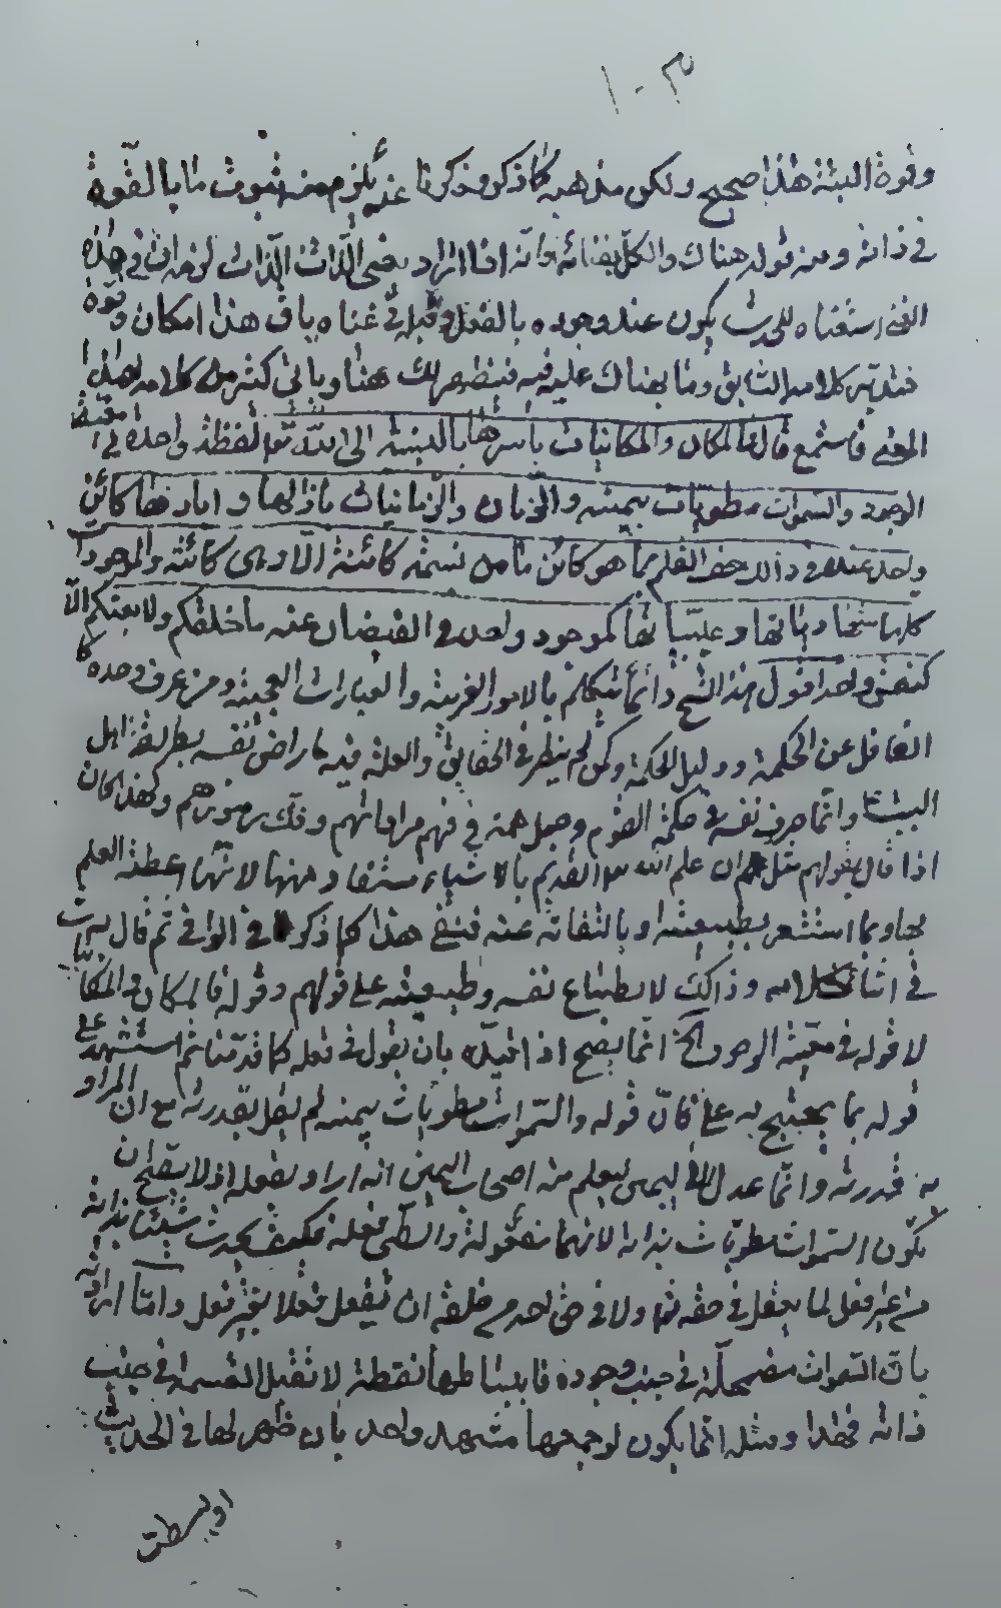 ١٠٣
وقوة البتة هذا صحيح ولكن مذهبه كما ذكر وذكرنا عنه يلزم منه ثبوت ما بالقوة
في ذاته ومنه قوله هناك والكل بغنائه فانه اذا اراد بمعنى الذات الذات لزمه ان في هذه
الغنى استغناه للحدث يكون عند وجوده بالفعل وقبله في غناه بان هذا امكان وقوة
فتدبر كلامه السابق وما بهناك عليه فيه فيظهر لك هنا وياتي كثير من كلامه لهذا
المعنى فاستمع قال فالمكان والمكانيات باسرها بالنسبة الى الله تعالى كنقطة واحدة في معية
الوجود والسموات مطويات بيمينه والزمان والزمانيات بآزالها وآبادها كآن
واحد عنده في ذلك جف القلم بما هو كائن ما من نسمة كائنة الا وهي كائنة والموجودات
كلها شهادياتها وغيبياتها كموجود واحد في الفيضان عنه ما خلقكم ولا بعثكم الا
كنفس واحدة اقول هذا الشيخ دائما يتكلم بالامور الغريبة والعبارات العجيبة ومن عرف وحده كا
الغافل عن الحكمة ودليل الحكمة وكمن لم ينظر في الحقايق والعلة فيه ما راض نفسه بطريقة اهل
البيت وانما صرف نفسه في حكمة القوم وجعل همه في فهم مراداتهم وفك رموزهم ولهذا كان
اذا قال بقولهم مثل ان علم الله القديم بالاشياء مستفاد منها لانها اعطته العلم
بها وربما استشعر بطبيعته او بالتفاته عنه فينفي هذا كما ذكر في الوافي ثم قال
في اثناء كلامه وذلك لانطباع نفسه وطبيعته على قولهم وقوله فالمكان والمكانيات
لا قوله في معية الوجود الخ انما يصح اذا قيده بان يقول في فعله كما قدمنا ثم استشهد على
قوله بما يحتج به عليه فان قوله والسموات مطويات بيمينه لم يقل بقدرته مع ان المراد
به قدرته وانما عدل الى اليمين ليعلم من اصحاب اليمين انه اراد بفعله اذ لا يصح ان
يكون السموات مطويات بذاته لانها مفعولة والطي فعله فكيف يحدث شيئا بذاته
من غير فعل لما يعقل في حقه ولا في حق احد من خلقه ان يفعل فعلا بغير فعل واما ارادته
بان السموات مضمحلة في جنب وجوده فايضا طيها نقطة لا تقبل القسمة في جنب
ذاته فهذا ومثله انما يكون لو جمعها مشهد واحد بان ظهر لها في الحدث